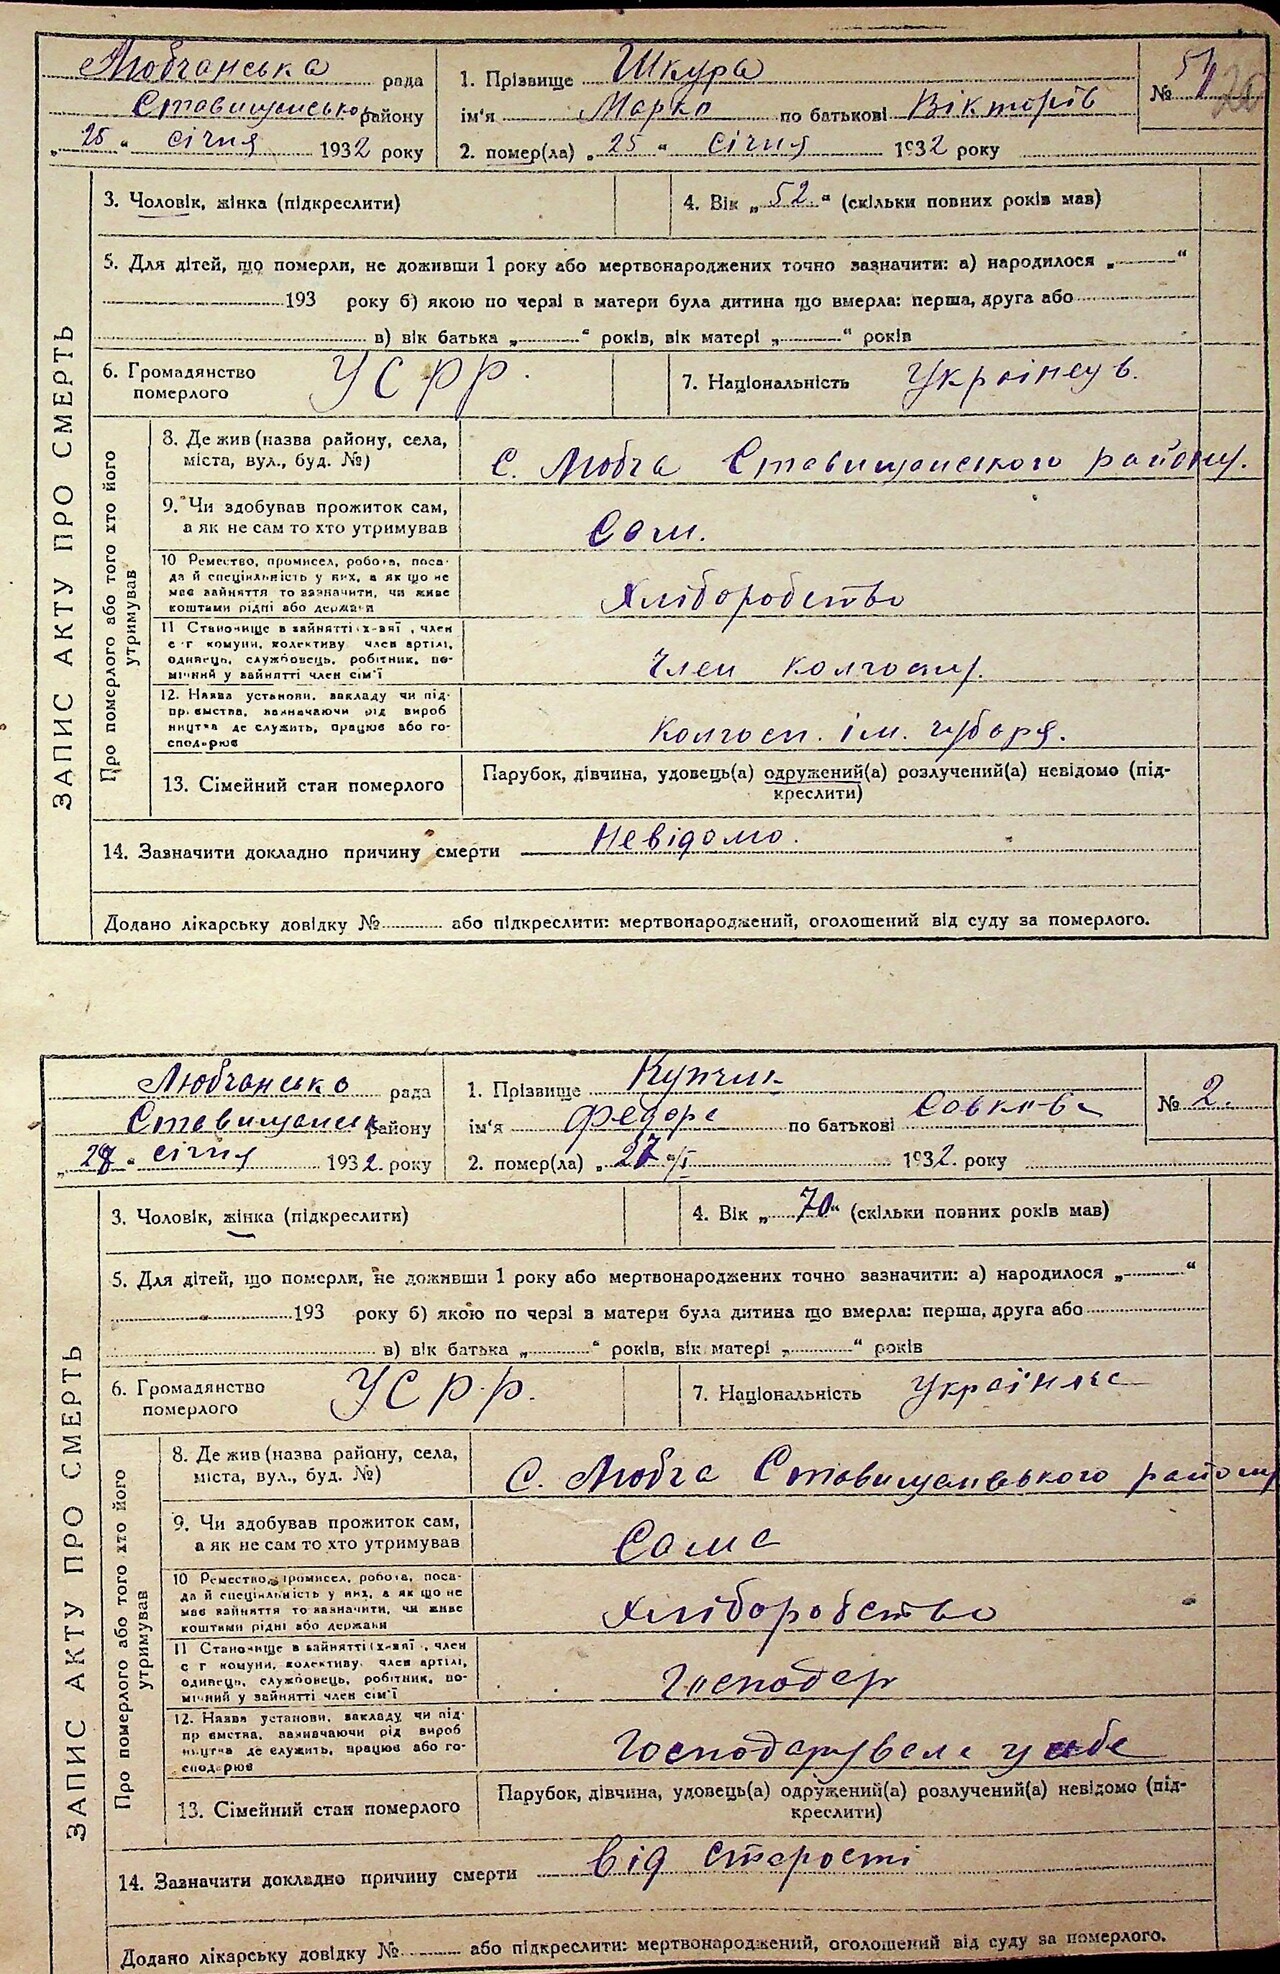 Любчанська рада
Ставищанськ району
„25“ січня 1932 року
1. Прізвище Шкура
ім'я Марко по батькові Вікторів
2. помер(ла) „25“ січня 1932 року
№ 1
3. Чоловік, жінка (підкреслити)
4. Вік „52“ (скільки повних років мав)
5. Для дітей, що померли, не доживши 1 року або мертвонароджених точно зазначити: а) народилося „ “
193 року б) якою по черзі в матери була дитина що вмерла: перша, друга або
в) вік батька „ “ років, вік матері „ “ років
6. Громадянство
померлого
УСРР.
7. Національність Українець.
ЗАПИС АКТУ ПРО СМЕРТЬ
Про померлого або того хто його
утримував
8. Де жив (назва району, села,
міста, вул., буд. №)
С. Любча Ставищанского району.
9. Чи здобував прожиток сам,
а як не сам то хто утримував
Сам.
10 Ремество, промисел, робота, поса-
да й спеціяльність у них, а як що не
має зайняття то зазначити, чи живе
коштами рідні або держави
Хліборобство
11 Становище в зайнятті , член
с-г комуни, колективу член артілі,
одинець, службовець, робітник, по-
мічний у зайнятті член сім'ї
Член колгоспу.
12. Назва установи, закладу чи під-
приємства, зазначаючи рід вироб
ництва де служить, працює або го-
сподарює
Колгосп. ім. Чубаря.
13. Сімейний стан померлого
Парубок, дівчина, удовець(а) одружений(а) розлучений(а) невідомо (під-
креслити)
14. Зазначити докладно причину смерти Невідомо.
Додано лікарську довідку № або підкреслити: мертвонароджений, оголошений від суду за померлого.
Любчанська рада
Ставищанськ району
„28“ січня 1932. року
1. Прізвище Купчик
ім'я Федора по батькові
2. помер(ла) „27“/I 1932. року
№ 2.
3. Чоловік, жінка (підкреслити)
4. Вік „70“ (скільки повних років мав)
5. Для дітей, що померли, не доживши 1 року або мертвонароджених точно зазначити: а) народилося „ “
193 року б) якою по черзі в матери була дитина що вмерла: перша, друга або
в) вік батька „ “ років, вік матері „ “ років
6. Громадянство
померлого
УСРР.
7. Національність Українка
ЗАПИС АКТУ ПРО СМЕРТЬ
Про померлого або того хто його
утримував
8. Де жив (назва району, села,
міста, вул., буд. №)
С. Любча Ставищанського району
9. Чи здобував прожиток сам,
а як не сам то хто утримував
Сама
10 Ремество, промисел, робота, поса-
да й спеціяльність у них, а як що не
має зайняття то зазначити, чи живе
коштами рідні або держави
Хліборобство
11 Становище в зайнятті , член
с г комуни, колективу член артілі,
одинець, службовець, робітник, по-
мічний у зайнятті член сім'ї
Господар
12. Назва установи, закладу чи під-
приємства, зазначаючи рід вироб
ництва де служить, працює або го-
сподарює
Господарувала у себе
13. Сімейний стан померлого
Парубок, дівчина, удовець(а) одружений(а) розлучений(а) невідомо (під-
креслити)
14. Зазначити докладно причину смерти від старості
Додано лікарську довідку № або підкреслити: мертвонароджений, оголошений від суду за померлого.